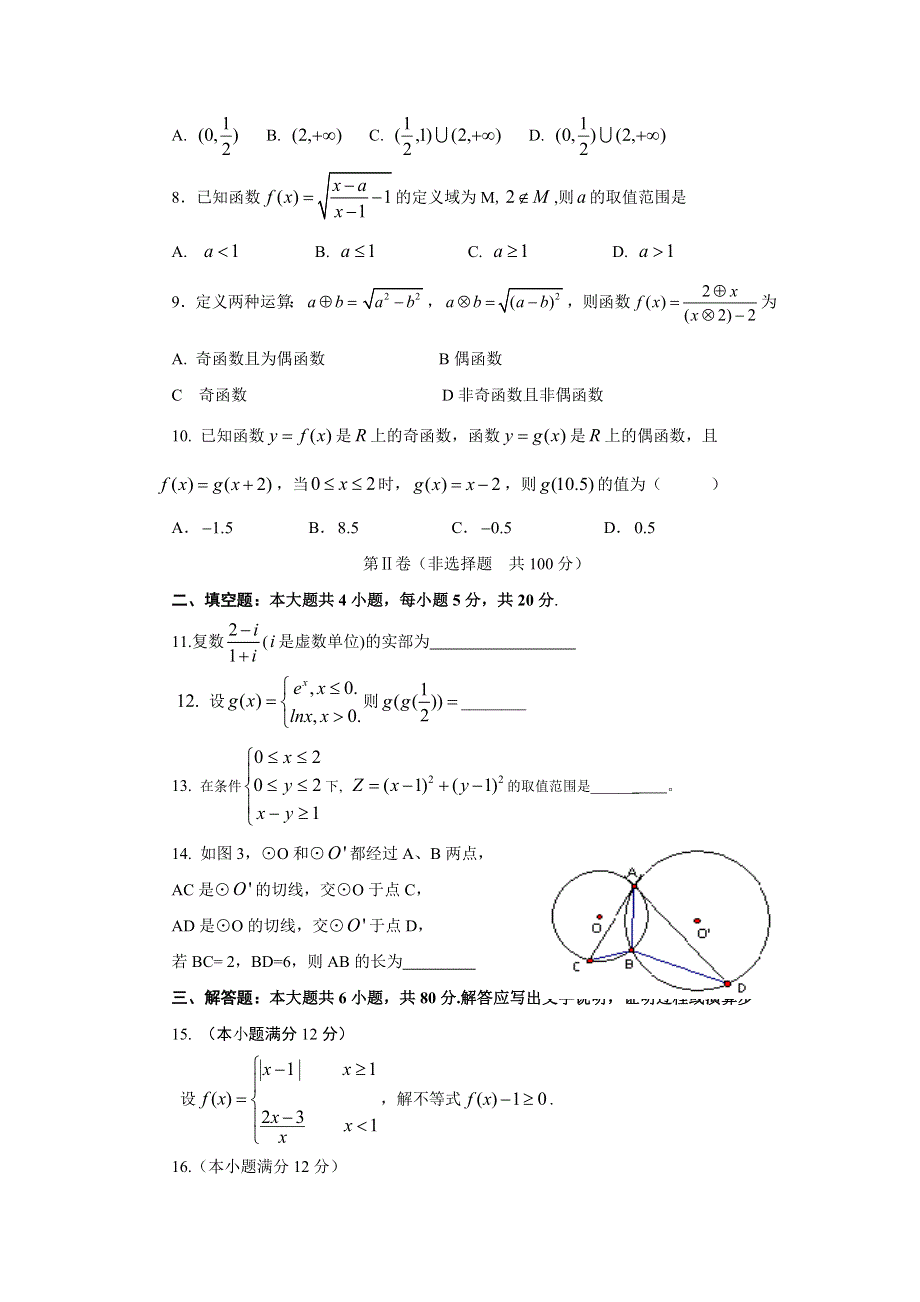 A. (0,1/2) B. (2,+∞) C. (1/2,1)∪(2,+∞) D. (0,1/2)∪(2,+∞)
8．已知函数 f(x)=√((x−a)/(x−1)−1) 的定义域为 M, 2∉M ,则 a 的取值范围是
A. a<1 B. a≤1 C. a≥1 D. a>1
9．定义两种运算：a⊕b=√(a²−b²)，a⊗b=√((a−b)²)，则函数 f(x)=(2⊕x)/((x⊗2)−2) 为
A. 奇函数且为偶函数 B 偶函数
C 奇函数 D 非奇函数且非偶函数
10. 已知函数 y=f(x) 是 R 上的奇函数，函数 y=g(x) 是 R 上的偶函数，且
f(x)=g(x+2)，当 0≤x≤2 时，g(x)=x−2，则 g(10.5) 的值为（ ）
A．−1.5 B．8.5 C．−0.5 D．0.5
第Ⅱ卷（非选择题 共 100 分）
二、填空题：本大题共 4 小题，每小题 5 分，共 20 分.
11.复数 (2−i)/(1+i) (i 是虚数单位)的实部为________
12. 设 g(x)={e^x, x≤0. lnx, x>0. 则 g(g(1/2))=________
13. 在条件 {0≤x≤2 0≤y≤2 x−y≥1 下, Z=(x−1)²+(y−1)² 的取值范围是________。
14. 如图 3，⊙O 和⊙O' 都经过 A、B 两点，
AC 是⊙O' 的切线，交⊙O 于点 C，
AD 是⊙O 的切线，交⊙O' 于点 D，
若 BC= 2，BD=6，则 AB 的长为________
A
O
O'
C
B
D
三、解答题：本大题共 6 小题，共 80 分.解答应写出文字说明，证明过程或演算步
15. （本小题满分 12 分）
设 f(x)={|x−1| x≥1 (2x−3)/x x<1 ，解不等式 f(x)−1≥0 .
16.（本小题满分 12 分）